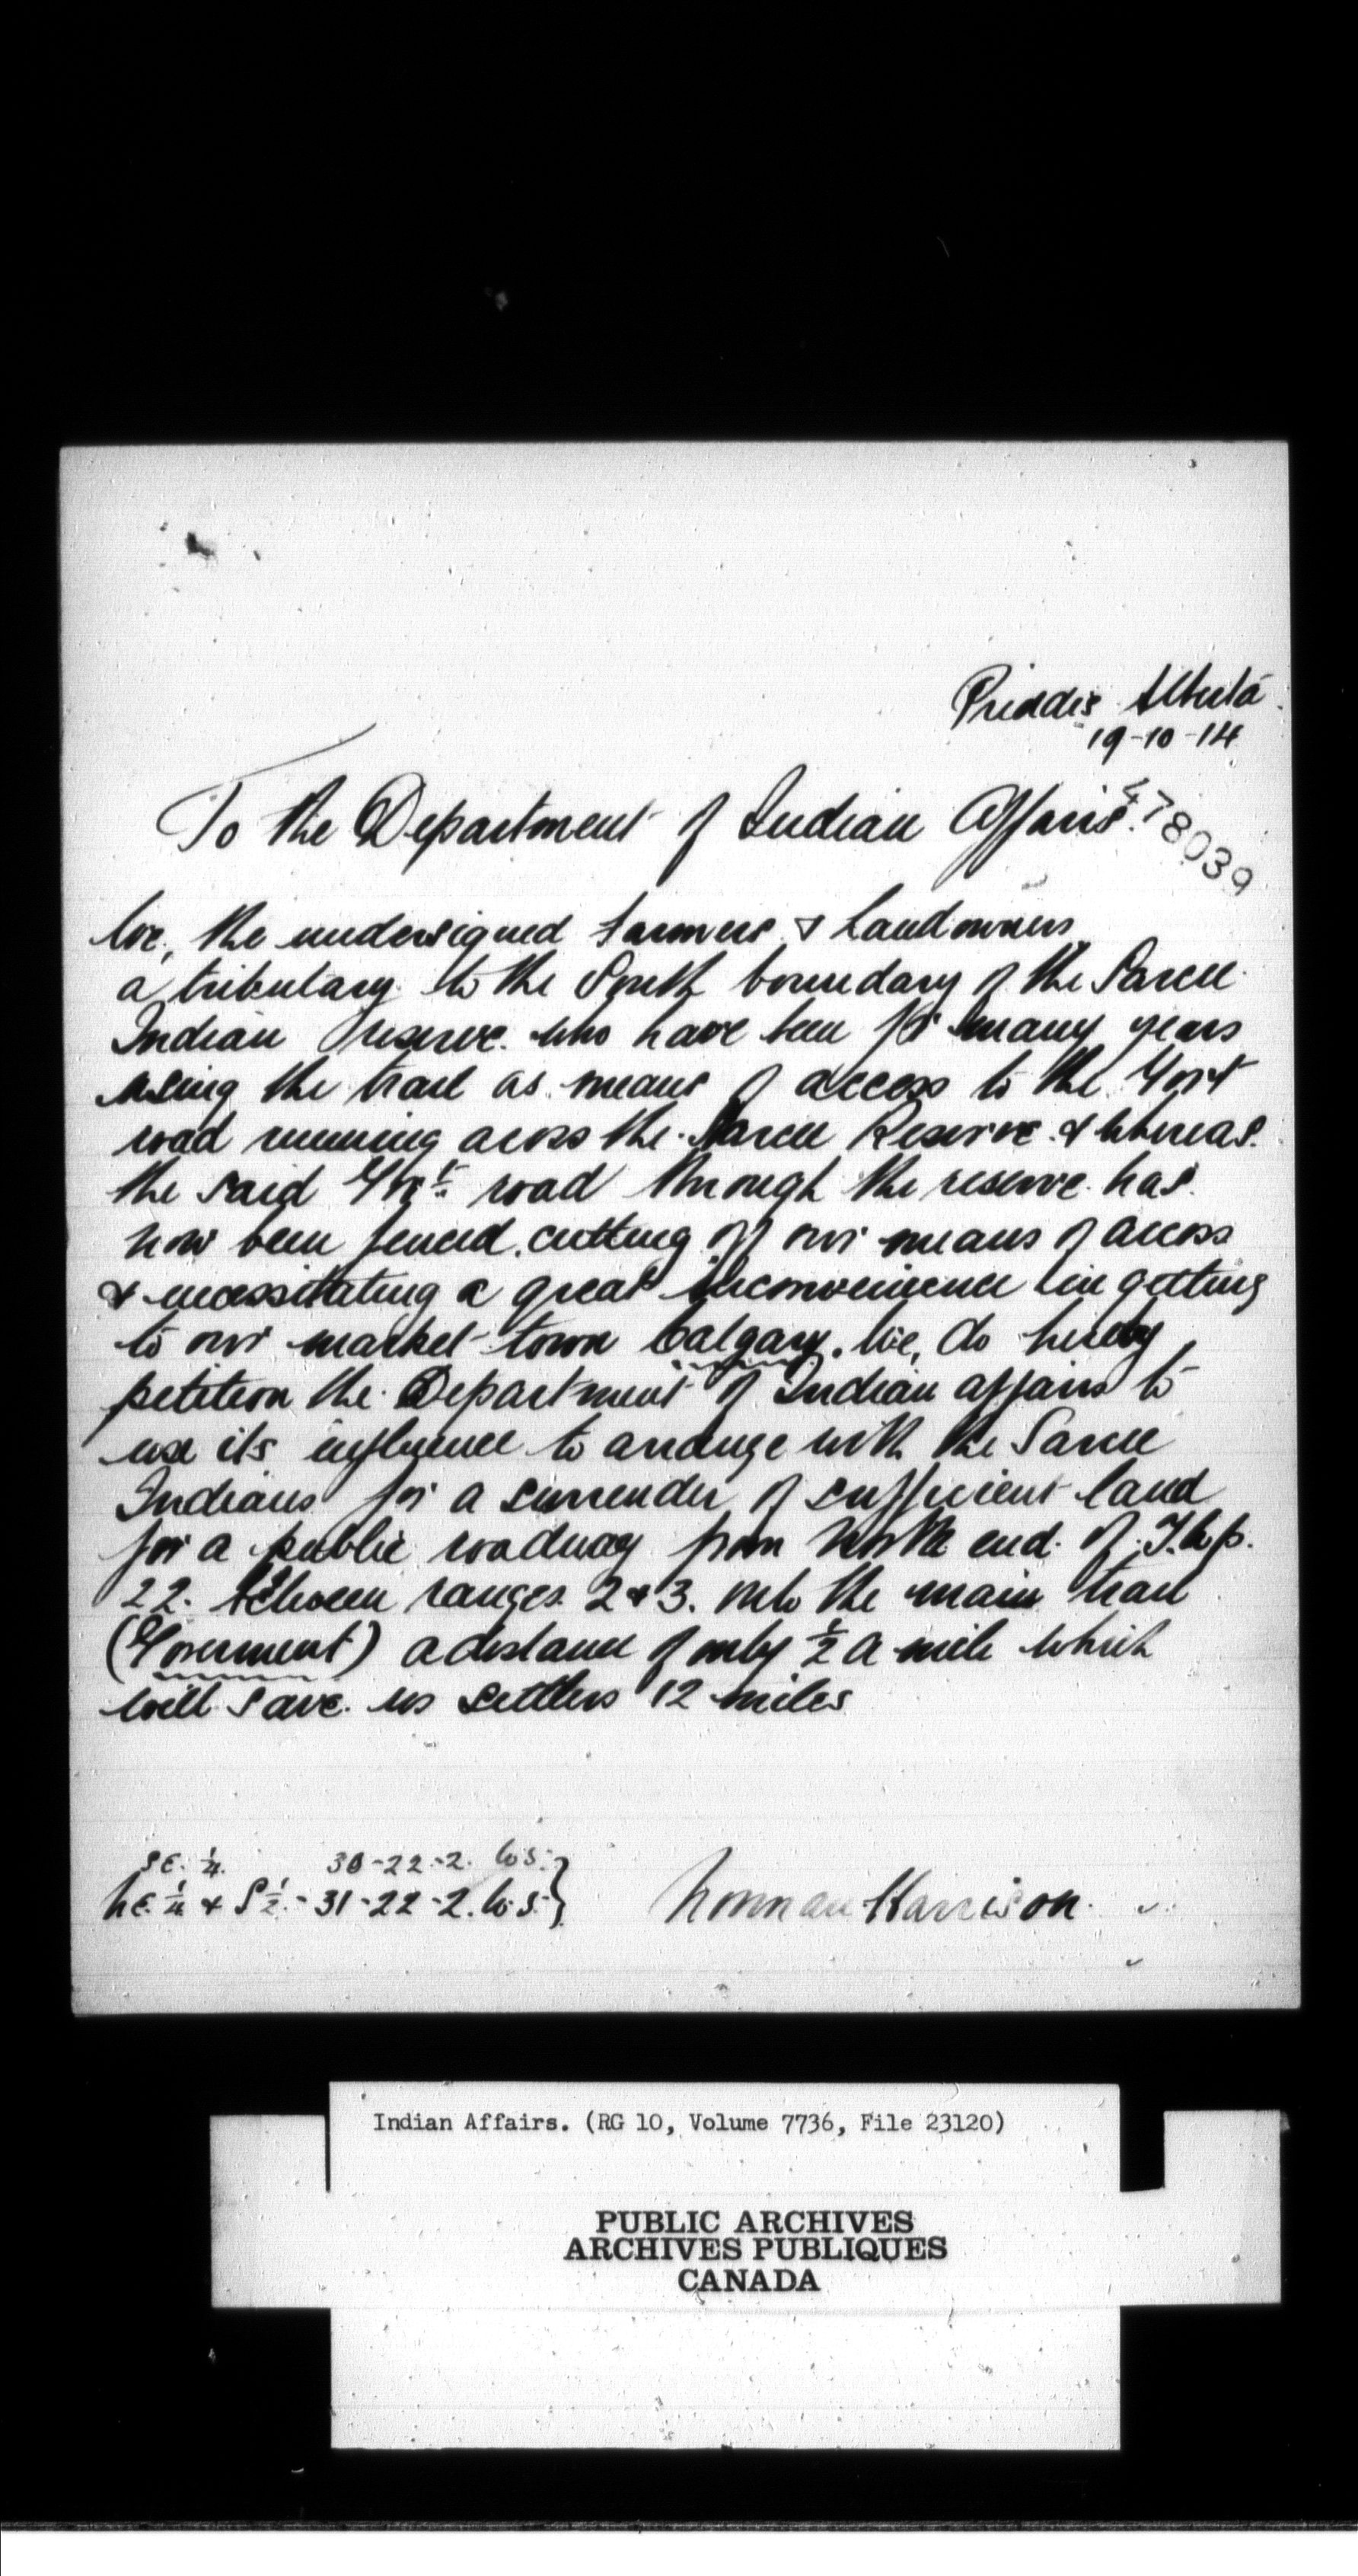 Priddis Alberta.
19-10-14
To the Department of Indian Affairs.
478039
We, the undersigned farmers & Landowners
a tributary to the South boundary of the Sarcee
Indian Reserve. who have been for many years
using the trail as means of access to the Govt
road running across the Sarcee Reserve. & whereas.
the said Govt. road through the reserve has.
now been fenced. cutting off our means of access
& necessitating a great inconvenience in getting
to our market town Calgary. We, do hereby
petition the Department of Indian affairs to
use its influence to arrange with the Sarcee
Indians for a surrender of sufficient land
for a public roadway from North end of T.w.p.
22. between ranges 2 & 3. onto the main trail
(Goverment) a distance of only ½ a mile which
will save us settlers 12 miles
SE. ¼. 30-22-2. W.5.
NE. ¼ & S ½.-31-22-2. W.5.
Norman Harrison.
Indian Affairs. (RG 10, Volume 7736, File 23120)
PUBLIC ARCHIVES
ARCHIVES PUBLIQUES
CANADA